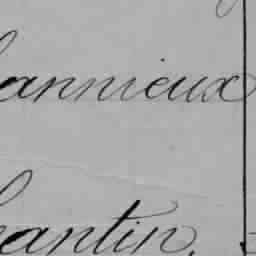 annieux
antin.